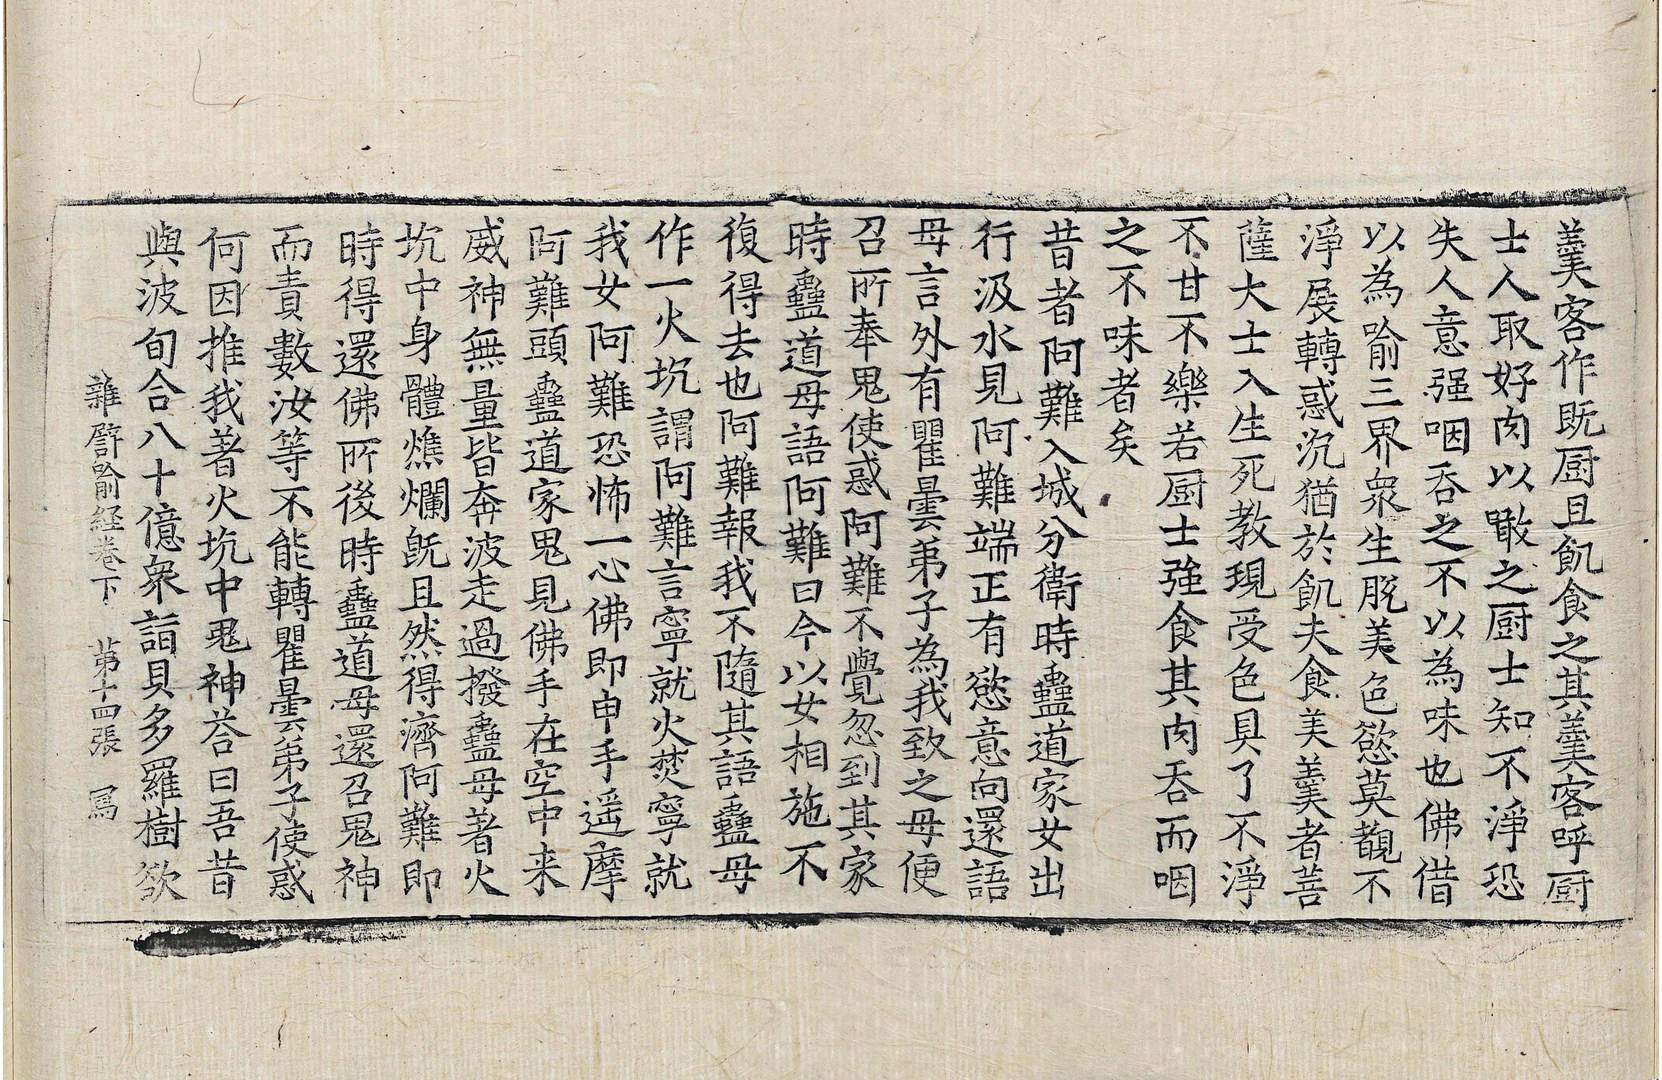 羹客作既厨且飢食之其羹客呼厨
士人取好肉以噉之厨士知不淨恐
失人意强咽吞之不以為味也佛借
以為喻三界衆生脫美色慾莫覩不
淨展轉惑沉猶於飢夫食美羹者菩
薩大士入生死教現受色具了不淨
不甘不樂若厨士強食其肉吞而咽
之不味者矣
昔者阿難入城分衛時蠱道家女出
行汲水見阿難端正有慾意向還語
母言外有瞿曇弟子為我致之母便
召所奉鬼使惑阿難不覺忽到其家
時蠱道母語阿難曰今以女相施不
復得去也阿難報我不隨其語蠱母
作一火坑謂阿難言寧就火焚寧就
我女阿難恐怖一心佛即申手遥摩
阿難頭蠱道家鬼見佛手在空中来
威神無量皆奔波走過撥蠱母著火
坑中身體燋爛旣且然得濟阿難即
時得還佛所後時蠱道母還召鬼神
而責數汝等不能轉瞿曇弟子使惑
何因推我著火坑中鬼神荅曰吾昔
與波旬合八十億衆詣貝多羅樹欲
雜譬喻経卷下 第十四張 寫